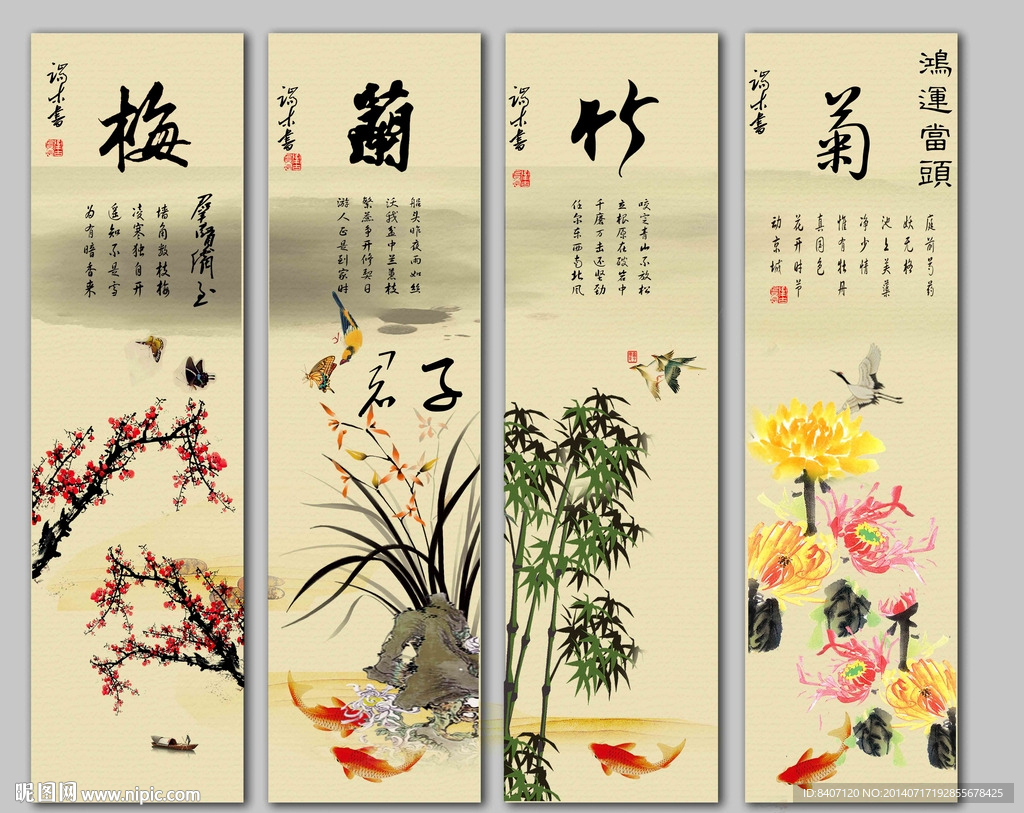 端木書
梅
墙角数枝梅
凌寒独自开
遥知不是雪
为有暗香来
端木書
蘭
船头昨夜雨如丝
沃我盆中兰蕙枝
繁蕊争开修契日
游人正是到家时
君子
端木書
竹
咬定青山不放松
立根原在破岩中
千磨万击还坚劲
任尔东西南北风
鴻運當頭
菊
端木書
庭前芍药
妖无格
池上芙蕖
净少情
惟有牡丹
真国色
花开时节
动京城
昵图网 www.nipic.com
ID:8407120 NO:20140717192855678425